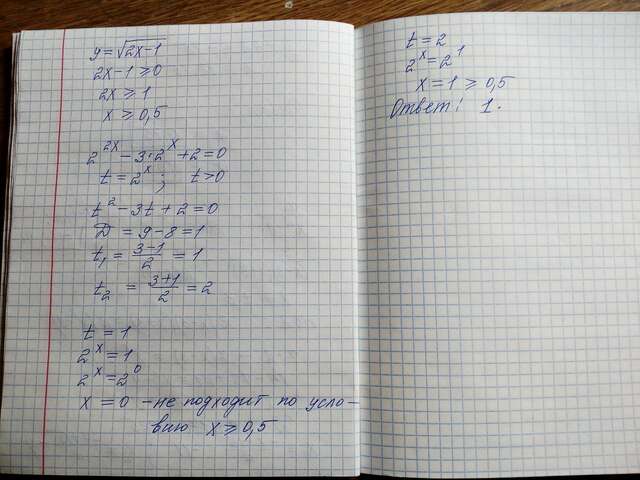 y = √2x-1
2x-1 ≥ 0
2x ≥ 1
x ≥ 0,5
2^2x - 3·2^x + 2 = 0
t = 2^x ; t > 0
t^2 - 3t + 2 = 0
D = 9 - 8 = 1
t₁ = (3-1)/2 = 1
t₂ = (3+1)/2 = 2
t = 1
2^x = 1
2^x = 2^0
x = 0 - не подходит по усло-
вию x ≥ 0,5
t = 2
2^x = 2^1
x = 1 ≥ 0,5
Ответ: 1.